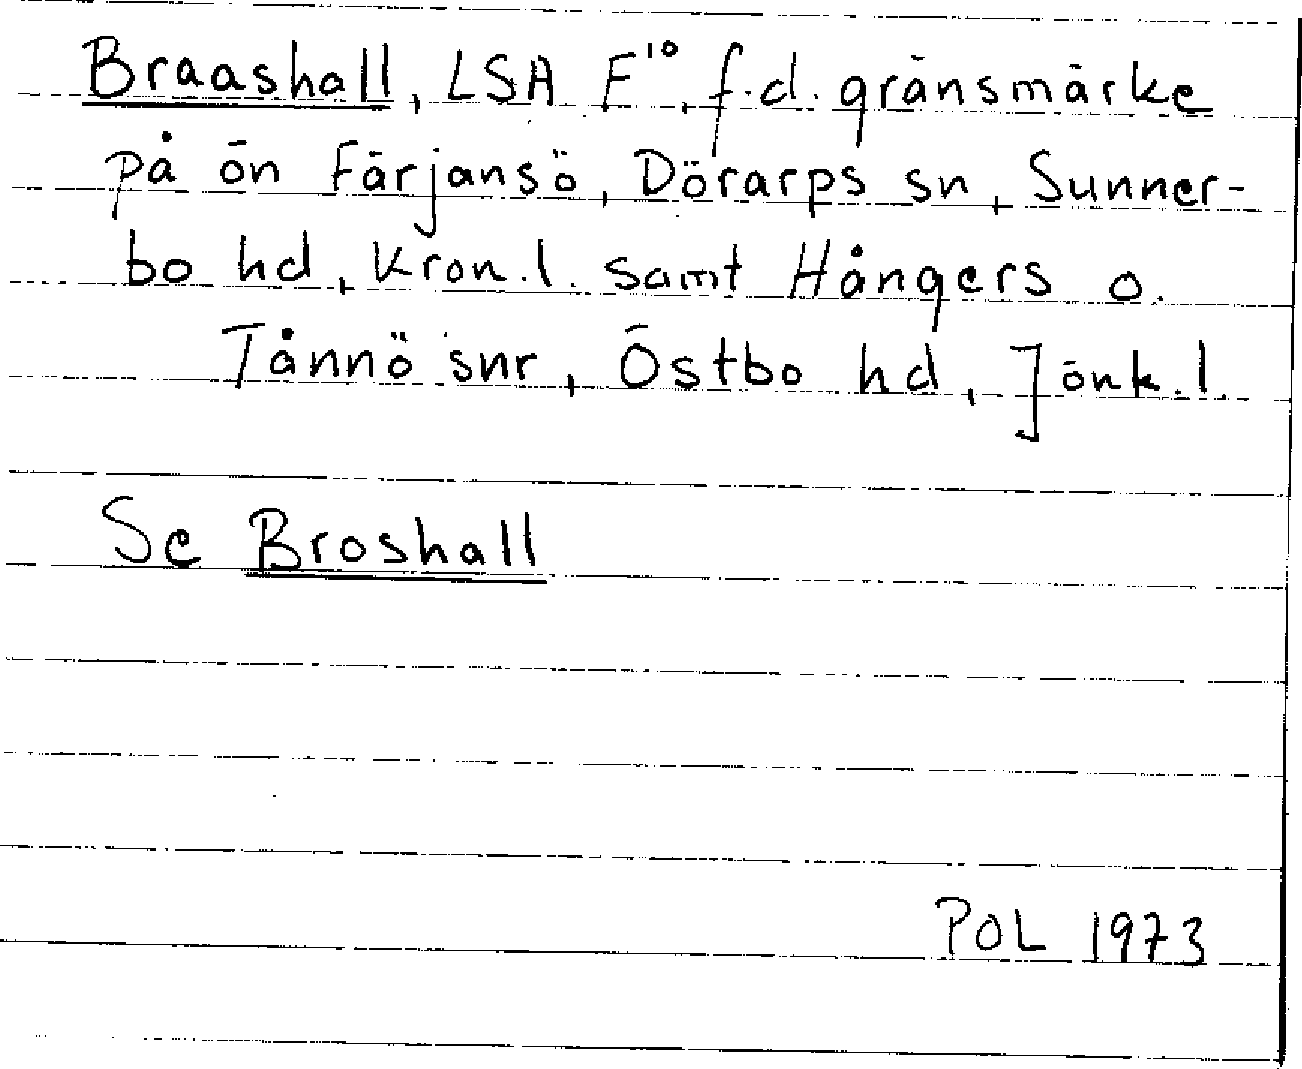 Braashall, LSA F¹⁰, f.d. gränsmärke
på ön Färjansö, Dörarps sn, Sunner-
bo hd, Kron.l. samt Hångers o.
Tånnö snr, Östbo hd, Jönk.l.
Se Broshall
POL 1973